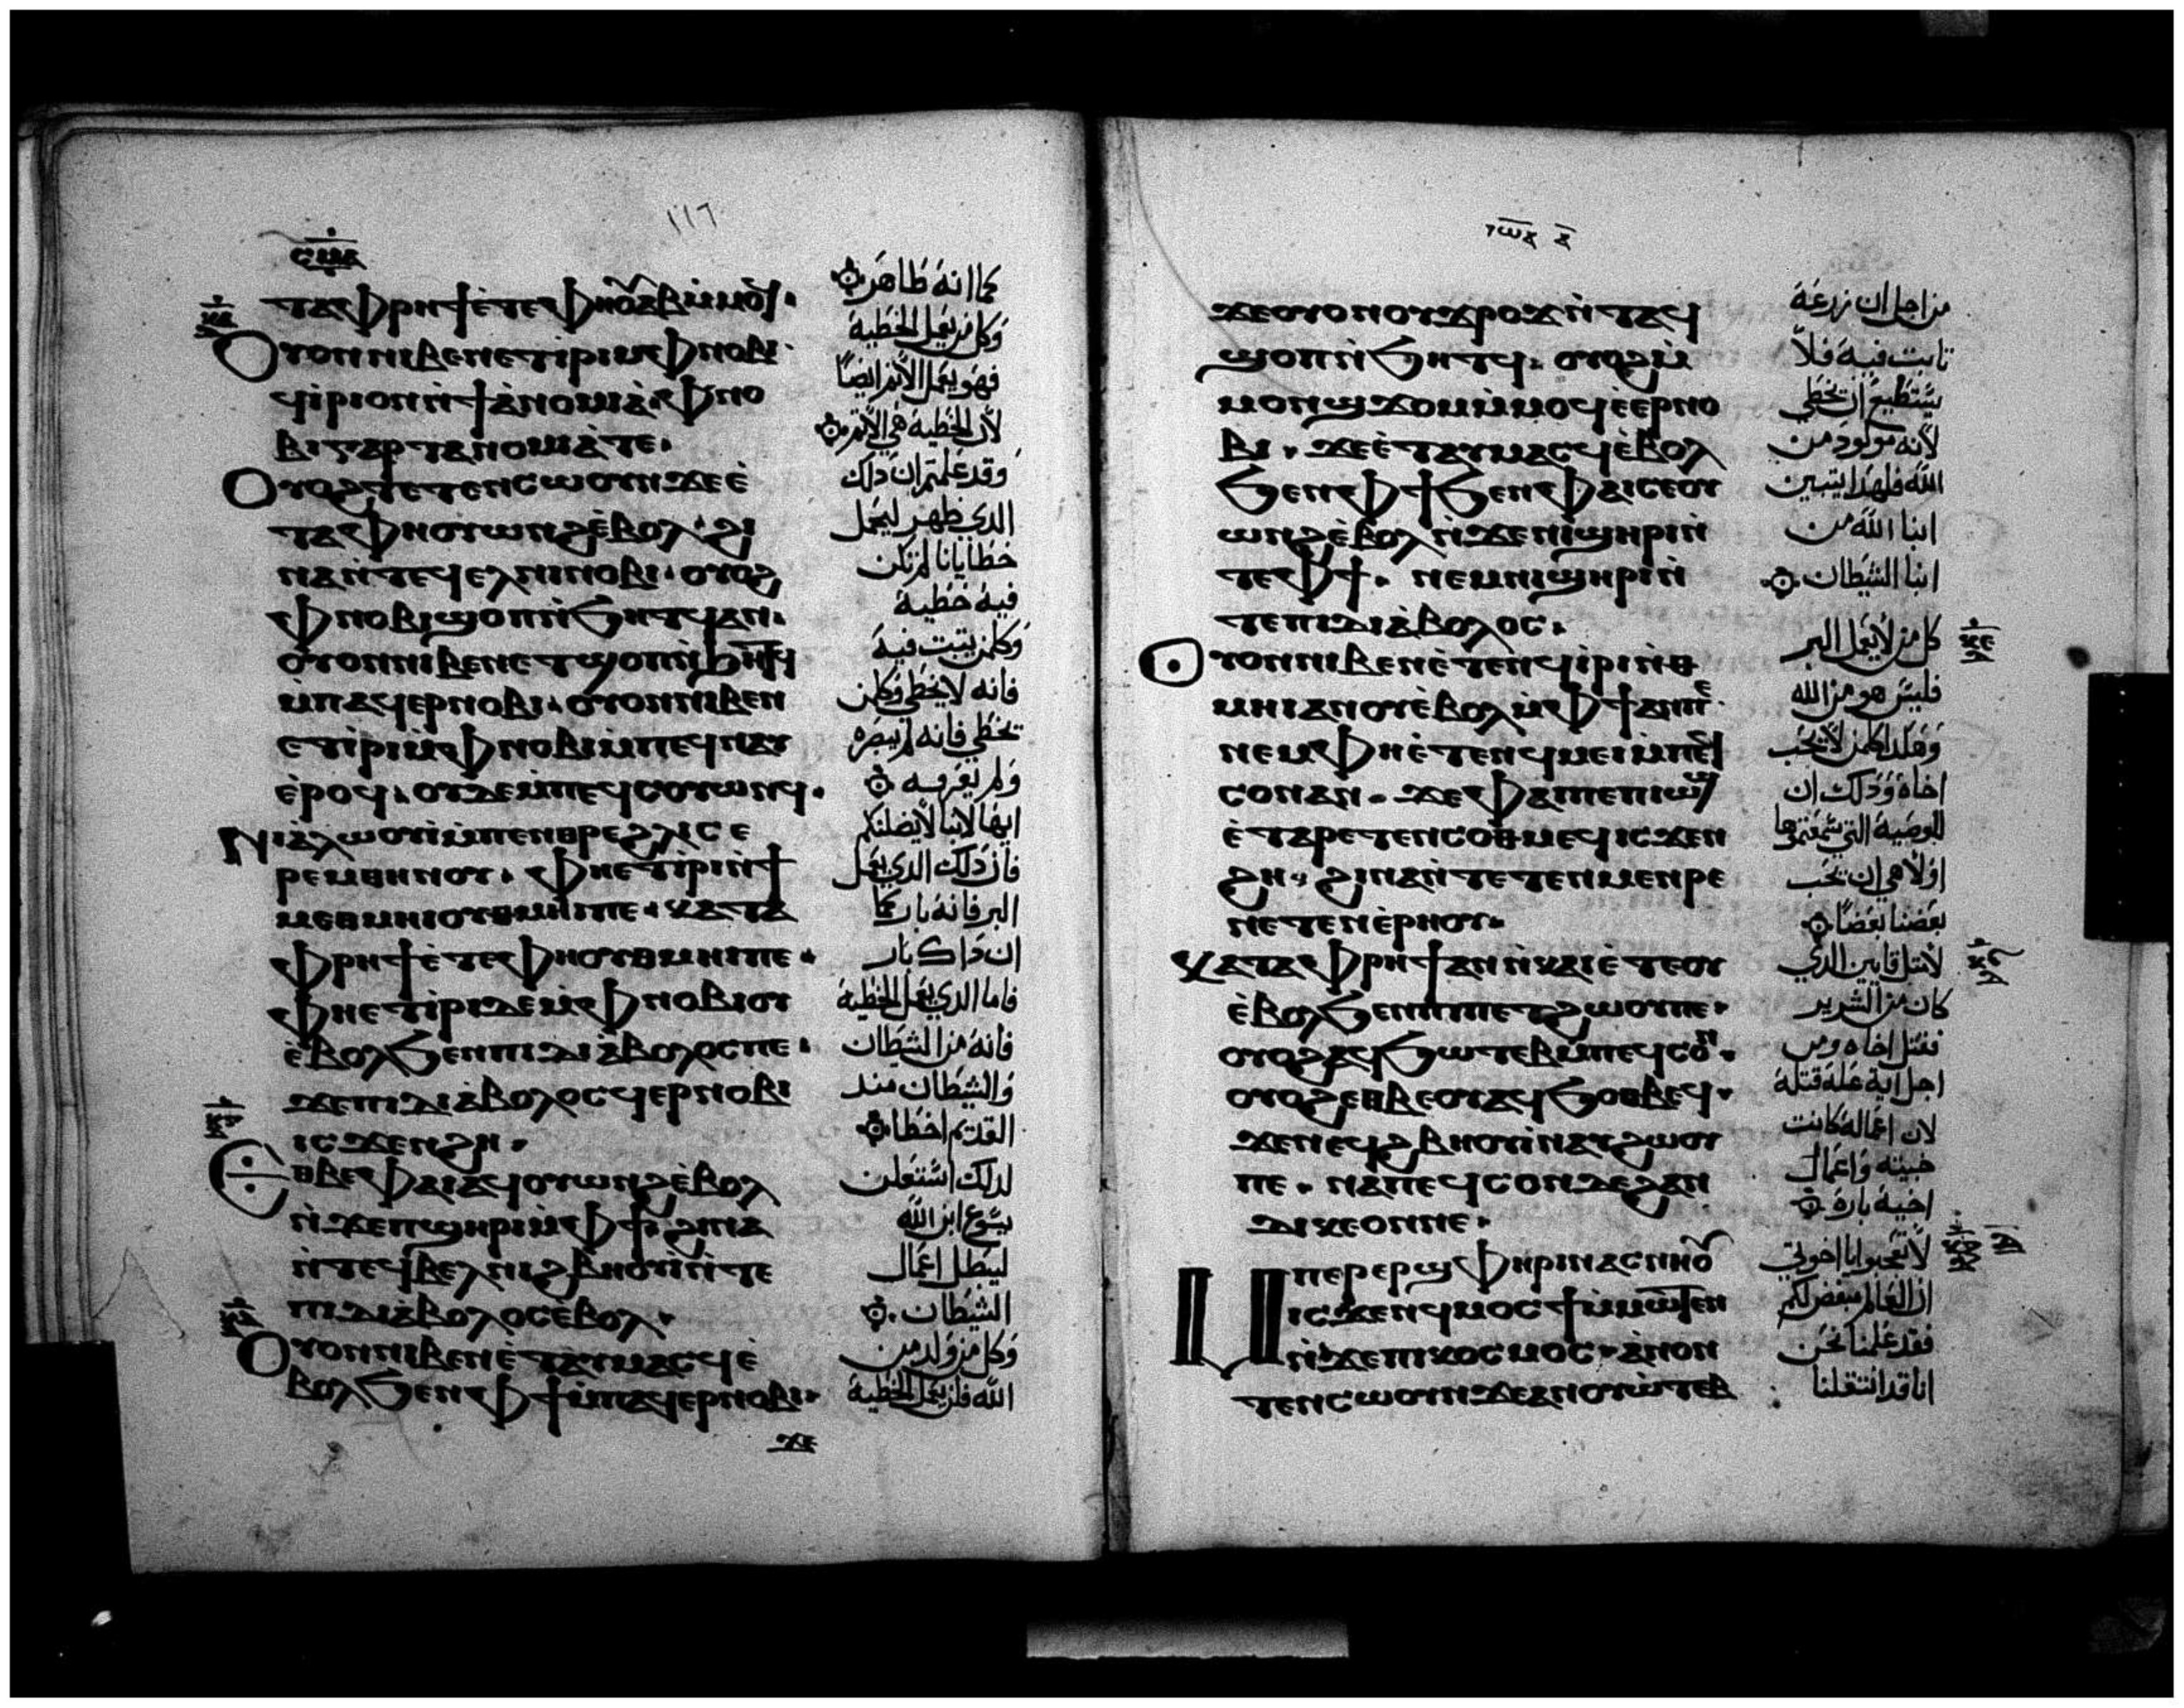 ١١٦
ⲧⲁⲫⲣⲏϯⲉ̀ⲧⲉⲫⲏⲟⲩⲁⲃⲙ̀ⲙⲟϥ·
Ⲟⲩⲟⲛⲛⲓⲃⲉⲛⲉⲧⲓⲣⲓⲙ̀ⲫⲛⲟⲃⲓ·
ϥⲓ̀ⲣⲓⲟⲛⲛ̀ϯⲁ̀ⲛⲟⲙⲓⲁ̀·ⲫⲛⲟ
ⲃⲓⲅⲁⲣⲧⲁⲛⲟⲙⲓⲁ̀ⲧⲉ·
Ⲟⲩⲟϩⲧⲉⲧⲉⲛⲥⲱⲟⲩⲛϫⲉⲉ̀
ⲧⲁⲫⲏⲟⲩⲱⲛϩⲉ̀ⲃⲟⲗ·ϩⲓ
ⲛⲁⲛ̀ⲧⲉϥⲉⲗⲛⲓⲛⲟⲃⲓ·ⲟⲩⲟϩ
ⲫⲛⲟⲃⲓϣⲟⲡⲛ̀ϧⲏⲧϥⲁⲛ·
ⲟⲩⲟⲛⲛⲓⲃⲉⲛⲉⲧϣⲟⲡⲛ̀ϧⲏⲧϥ
ⲙ̀ⲡⲁϥⲉⲣⲛⲟⲃⲓ·ⲟⲩⲟⲛⲛⲓⲃⲉⲛ
ⲉⲧⲓ̀ⲣⲓⲙ̀ⲫⲛⲟⲃⲓⲙ̀ⲡⲉϥⲛⲁⲩ
ⲉ̀ⲣⲟϥ·ⲟⲩⲇⲉⲙ̀ⲡⲉϥⲥⲟⲩⲱⲛϥ·
Ⲛⲓⲁ̀ⲗⲱⲟⲩⲓ̀ⲙ̀ⲡⲉⲛⲑⲣⲉϩⲗⲓⲥⲉ
ⲣⲉⲙⲑⲏⲛⲟⲩ·ⲫⲏⲉⲧⲓ̀ⲣⲓⲛ̀ϯ
ⲙⲉⲑⲙⲏⲓⲟⲩⲑⲙⲏⲓⲡⲉ·ⲕⲁⲧⲁ
ⲫⲣⲏϯⲉ̀ⲧⲉⲫⲏⲟⲩⲑⲙⲏⲓⲡⲉ·
ⲫⲏⲉⲧⲓ̀ⲣⲓⲇⲉⲙ̀ⲫⲛⲟⲃⲓⲟⲩ
ⲉ̀ⲃⲟⲗϧⲉⲛⲡⲓⲇⲓⲁ̀ⲃⲟⲗⲟⲥⲡⲉ·
ϫⲉⲡⲓⲇⲓⲁ̀ⲃⲟⲗⲟⲥϥⲉⲣⲛⲟⲃⲓ
ⲓⲥϫⲉⲛϩⲏ·
Ⲉⲑⲃⲉⲫⲁⲓⲁϥⲟⲩⲱⲛϩⲉ̀ⲃⲟⲗ
ⲛ̀ϫⲉⲡϣⲏⲣⲓⲙ̀ⲫϯϩⲓⲛⲁ
ⲛ̀ⲧⲉϥⲃⲉⲗⲛⲓϩⲃⲏⲟⲩⲓ̀ⲛ̀ⲧⲉ
ⲡⲓⲇⲓⲁ̀ⲃⲟⲗⲟⲥⲉ̀ⲃⲟⲗ·
Ⲟⲩⲟⲛⲛⲓⲃⲉⲛⲉ̀ⲧⲁⲩⲙⲁⲥϥⲉ̀
ⲃⲟⲗϧⲉⲛⲫϯⲙ̀ⲡⲁϥⲉⲣⲛⲟⲃⲓ·
ϫⲉ
كما انه طاهر
وكل من يعمل الخطية
فهو يعمل الاثم ايضًا
لان الخطية هي الاثم
وقد علمتم ان ذلك
الذي ظهر ليحمل
خطايانا لم تكن
فيه خطية
وكلمن يتبت فيه
فانه لا يخطي وكلمن
يخطي فانه لم يبصره
ولم يعرفه
ايها الابنا لا يضلنكم
فان ذلك الذي يعمل
البر فانه بار كما
ان ذاك بار
فاما الذي يعمل الخطية
فانه من الشيطان
والشيطان منذ
القديم اخطا
لذلك استعلن
يسوع ابن الله
ليبطل اعمال
الشيطان
وكل من ولد من
الله فلن يعمل الخطية
ϫⲉⲟⲩⲟⲛⲟⲩϫⲣⲟϫⲛ̀ⲧⲁϥ
ϣⲟⲡⲛ̀ϧⲏⲧϥ·ⲟⲩⲟϩⲙ̀
ⲙⲟⲛϣϫⲟⲙⲙ̀ⲙⲟϥⲉ̀ⲉⲣⲛⲟ
ⲃⲓ·ϫⲉⲉ̀ⲧⲁⲩⲙⲁⲥϥⲉ̀ⲃⲟⲗ
ϧⲉⲛⲫϯϧⲉⲛⲫⲁⲓⲥⲉⲟⲩ
ⲱⲛϩⲉ̀ⲃⲟⲗⲛ̀ϫⲉⲛⲓϣⲏⲣⲓⲛ̀
ⲧⲉⲫϯ·ⲛⲉⲙⲛⲓϣⲏⲣⲓⲛ̀
ⲧⲉⲡⲓⲇⲓⲁ̀ⲃⲟⲗⲟⲥ·
Ⲟⲩⲟⲛⲛⲓⲃⲉⲛⲉ̀ⲧⲉⲛϥⲓ̀ⲣⲓⲛ̀ⲑ
ⲙⲏⲓⲁⲛⲟⲩⲉ̀ⲃⲟⲗⲙ̀ⲫϯⲁⲛⲡⲉ·
ⲛⲉⲙⲫⲏⲉ̀ⲧⲉⲛϥⲙⲉⲓⲙ̀ⲡⲉϥ
ⲥⲟⲛⲁⲛ·ϫⲉⲫⲁⲓⲡⲉⲡⲓⲱϣ
ⲉ̀ⲧⲁⲣⲉⲧⲉⲛⲥⲟⲑⲙⲉϥⲓⲥϫⲉⲛ
ϩⲏ·ϩⲓⲛⲁⲛ̀ⲧⲉⲧⲉⲛⲙⲉⲛⲣⲉ
ⲛⲉⲧⲉⲛⲉ̀ⲣⲏⲟⲩ·
Ⲕⲁⲧⲁⲫⲣⲏϯⲁⲛⲛ̀ⲕⲁⲓⲉ̀ⲧⲉⲟⲩ
ⲉ̀ⲃⲟⲗϧⲉⲛⲡⲓⲡⲉⲧϩⲱⲟⲩⲡⲉ·
ⲟⲩⲟϩⲁϥϧⲱⲧⲉⲃⲙ̀ⲡⲉϥⲥⲟⲛ·
ⲟⲩⲟϩⲉⲑⲃⲉⲟⲩⲁϥϧⲟⲑⲃⲉϥ·
ϫⲉⲛⲉϥϩⲃⲏⲟⲩⲓ̀ⲛⲁⲩϩⲱⲟⲩ
ⲡⲉ·ⲛⲁⲡⲉϥⲥⲟⲛⲇⲉϩⲁⲛ
ⲇⲓⲕⲉⲟⲛⲡⲉ·
Ⲙⲡⲉⲣⲉⲣϣⲫⲏⲣⲓⲛⲁⲥⲛⲏⲟⲩ
ⲓⲥϫⲉⲛϥⲙⲟⲥϯⲙ̀ⲙⲱⲧⲉⲛ
ⲛ̀ϫⲉⲡⲓⲕⲟⲥⲙⲟⲥ·ⲁ̀ⲛⲟⲛ
ⲧⲉⲛⲥⲱⲟⲩⲛϫⲉⲁⲛⲟⲩⲱ̀ⲧⲉⲃ
من اجل ان زرعه
تابت فيه فلا
يستطيع ان يخطي
لانه مولود من
الله فلهذا يتبين
ابنا الله من
ابنا الشيطان
كل من لا يعمل البر
فليس هو من الله
وهكذا كلمن لا يحب
اخاه وذلك ان
الوصية التي سمعتموها
اولا هي ان يحب
بعضنا بعضًا
لا مثل قايين الذي
كان من الشرير
فقتل اخاه ومن
اجل اية علة قتله
لان اعماله كانت
خبيثه واعمال
اخيه بارة
لا تعجبوا يا اخوتي
ان العالم يبغضكم
فقد علمنا نحن
انا قد انتقلنا